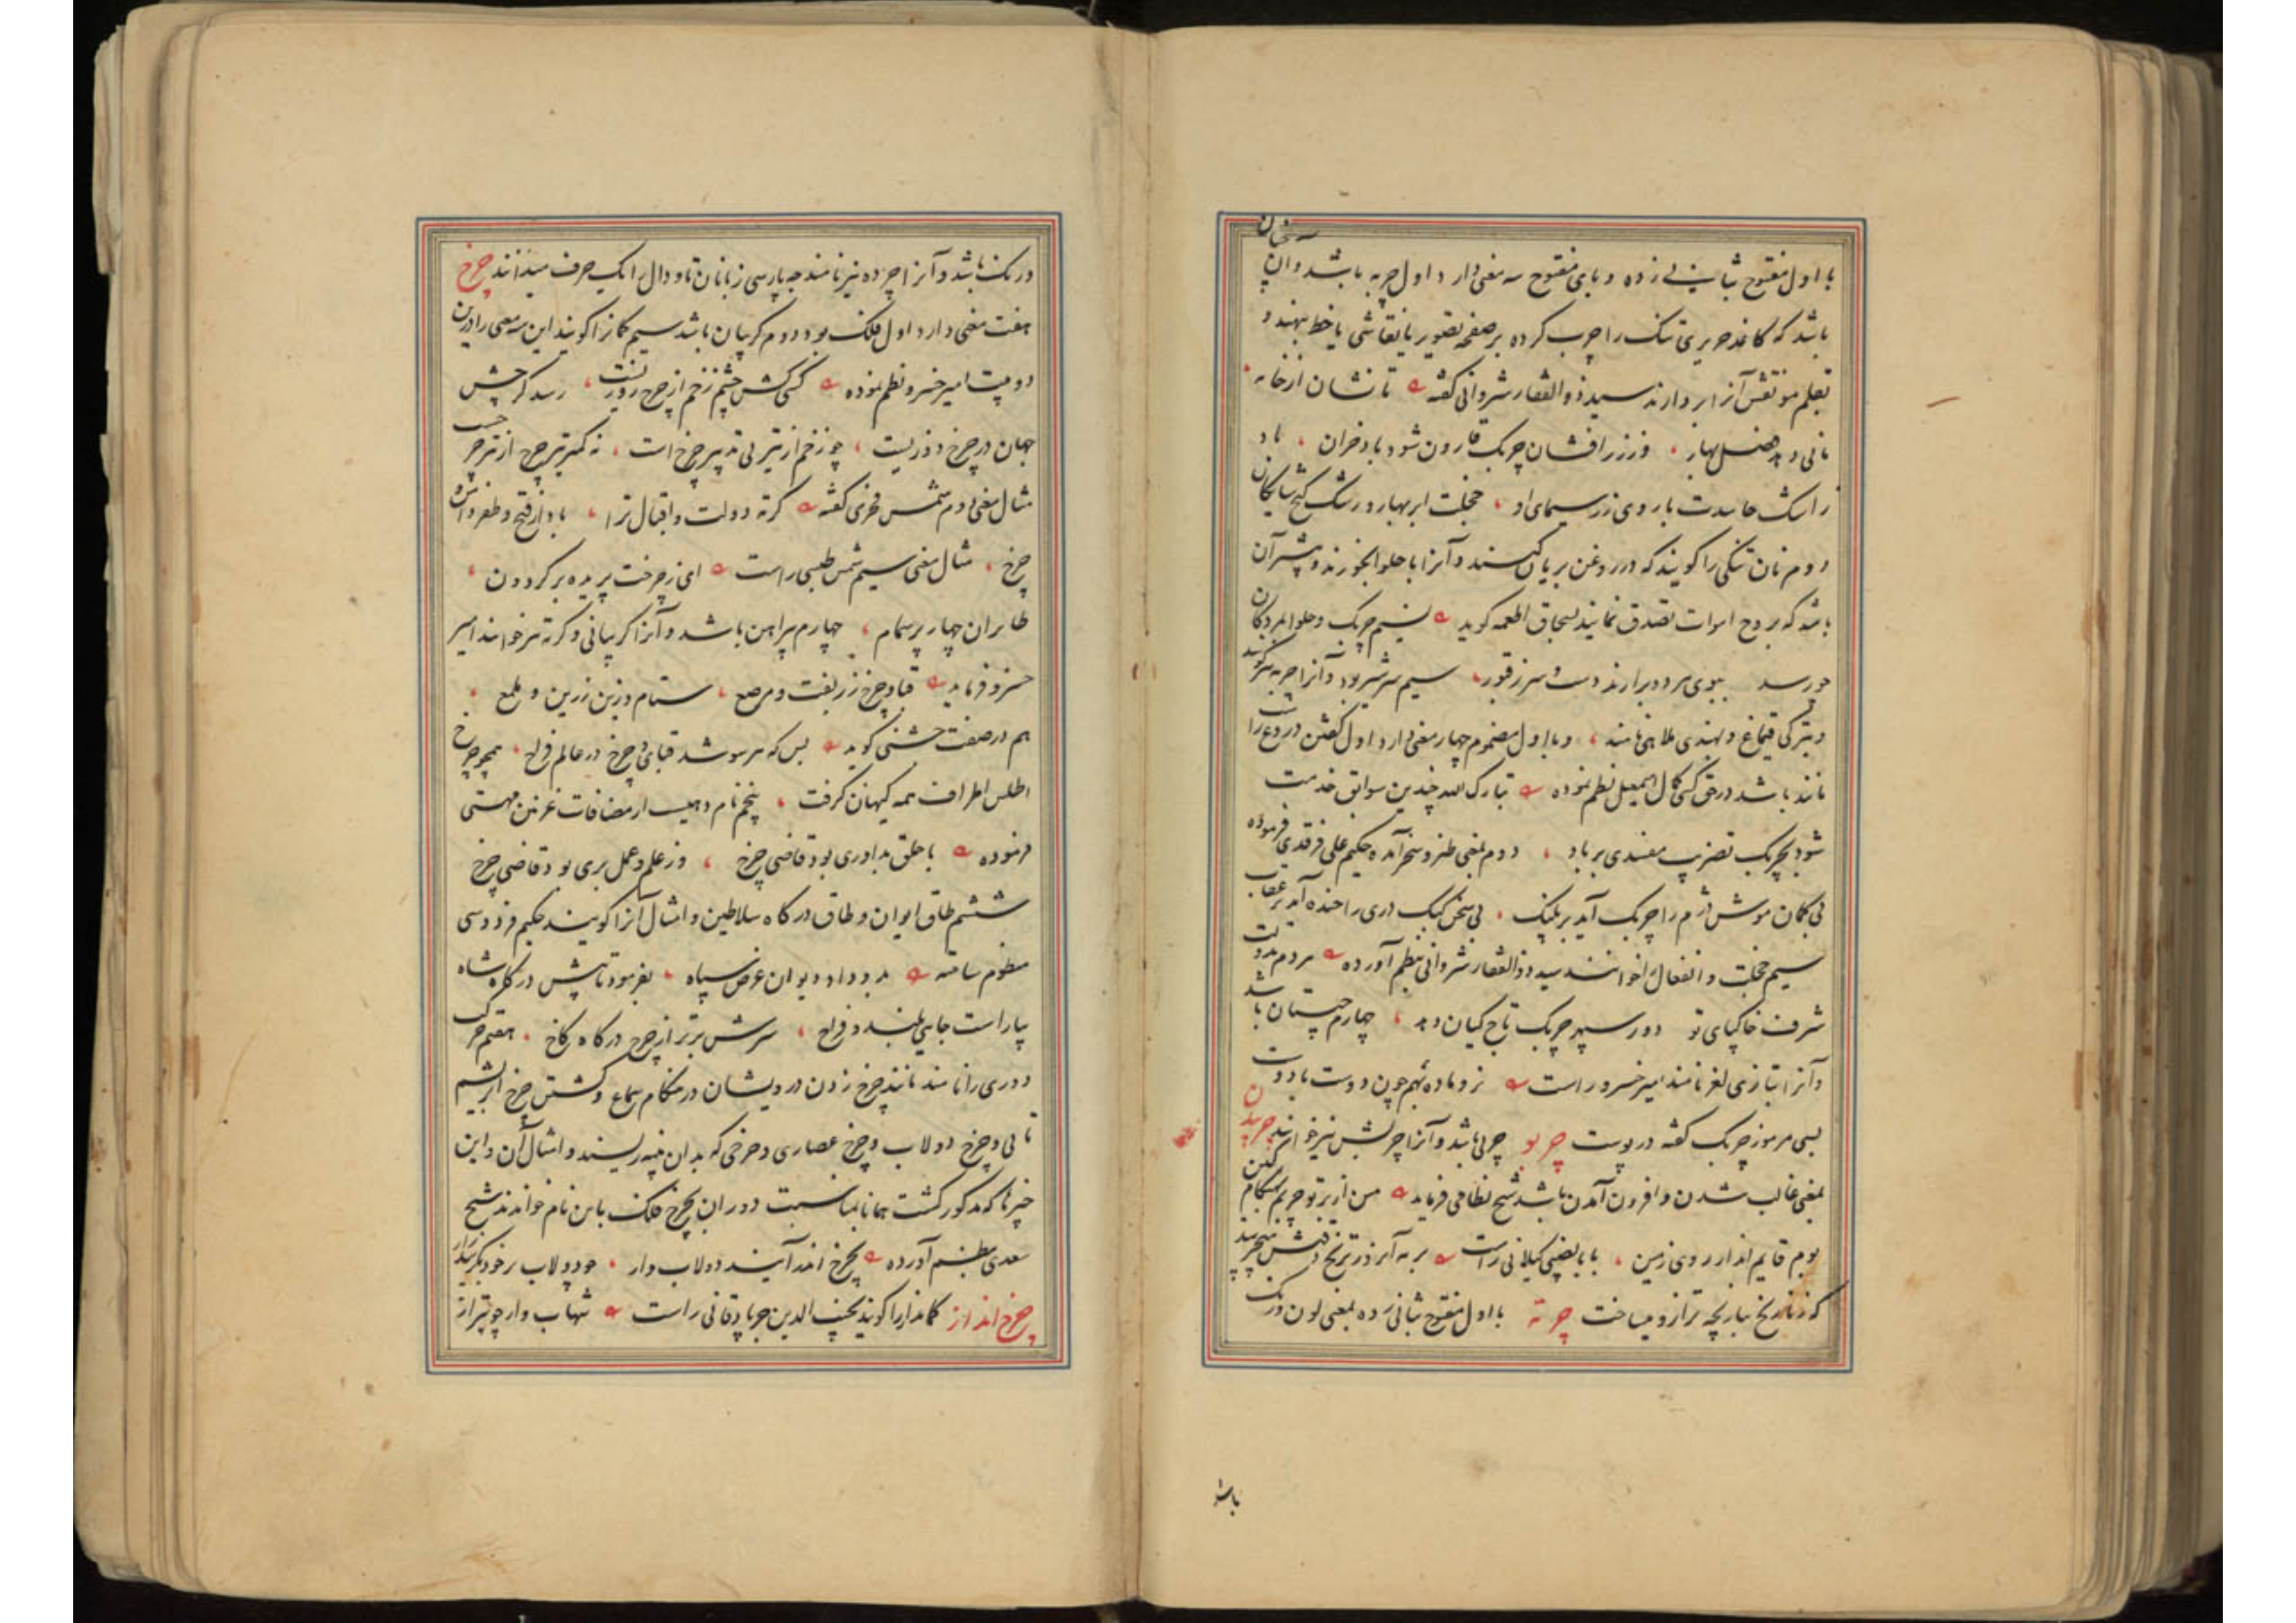 با اول مفتوح بثانی زده و بای مفتوح سه معنی دارد اول چربه باشد و آن چنان
باشد که کاغذ حریری تنک را چرب کرده بر صفحه تصویر یا نقاشی یا خط نهند و
بقلم مو نقش آنرا بردارند سید ذوالفقار شروانی گفته تا نشان از خامه
مانی دهد فصل بهار وز زر افشان چربک قارون شود باد خزان باد
ز اشک حاسدت با روی زر سیمای او خجلت ابر بهار و رشک گنج شایگان
دوم نان تنکی را گویند که در روغن بریان کنند و آنرا با حلوا بخورند و بیشتر آن
باشد که بروح اموات تصدق نمایند بسحاق اطعمه گوید نسیم چربک و حلوا بمردگان
چو رسد ببوی هر دو برآرند دست و سر ز قبور سیم سرشیر بود و آنرا چربه نیز گویند
و بترکی قیماغ و بهندی ملاهی نامند و با اول مضموم چهار معنی دارد اول گفتن دروغ راست
مانند باشد در حق کسی کمال اسمعیل نظم نموده تبارک الله چندین سوابق خدمت
شود بچربک تضریب مفسدی بر باد دوم بمعنی طنز و سخر آمده حکیم علی فرقدی فرموده
بی گمان موش دژم را چربک آید بر پلنگ بی سخن کبک دری را خنده آید بر عقاب
سیم خجلت و انفعال را خوانند سید ذوالفقار شروانی بنظم آورده مردم بدولت
شرف خاکپای تو دور سپهر چربک تاج کیان دهد چهارم چیستان باشد
و آنرا بتازی لغز نامند امیر خسرو راست نر و ماده بهم چون دوست با دوست
بسی مرموز چربک گفته در پوست چربو چربی باشد و آنرا چربش نیز خوانند چربیدن
بمعنی غالب شدن و افزون آمدن باشد شیخ نظامی فرماید من از بر تو چربم بهنگام کین
بوم قایم انداز روی زمین بابا نصیبی گیلانی راست به آبروز ترنج ذقنش میچربید
که ز نارنج بباریچه ترازو میساخت چرته با اول مفتوح بثانی زده بمعنی لون و رنگ
باشد
و رنگ باشد و آنرا چرده نیز نامند چه پارسی زبانان تا و دال را یک حرف میدانند چرخ
هفت معنی دارد اول فلک بود دوم گریبان باشد سیم کمانرا گویند این سه معنی را درین
دو بیت امیر خسرو نظم نموده کسی کش چشم زخم از چرخ روزیست رسد گر چش
جهان در چرخ دوزیست چو زخم از تیر بی تدبیر چرخ است نه کمتر تیر چرخ از تیر چرخست
مثال معنی دوم شمس فخری گفته کرته دولت و اقبال ترا باد از فتح و ظفر دامن و
چرخ مثال معنی سیم شمس طبسی راست ای ز چرخت پریده بر گردون
طایران چهار پر سهام چهارم پیراهن باشد و آنرا گریبانی و کرته نیز خوانند امیر
خسرو فرماید قبا و چرخ زربفت و مرصع ستام و زین زرین و ملمع
هم در صفت جشنی گوید بس که هر سو شد قبای و چرخ در عالم فراخ همچو چرخ
اطلس اطراف همه کیهان گرفت پنجم نام دهیست از مضافات غزنین مهستی
فرموده با خلق بداوری بود قاضی چرخ وز علم و عمل بری بود قاضی چرخ
ششم طاق ایوان و طاق درگاه سلاطین و امثال آنرا گویند حکیم فردوسی
منظوم ساخته بدو داد دیوان عرض سپاه بفرمود تا پیش درگاه شاه
بیاراست جایی بلند و فراخ سرش برتر از چرخ درگاه کاخ هفتم حرکت
دوری را نامند مانند چرخ زدن درویشان در هنگام سماع و گشتن چرخ ابریشم
تابی و چرخ دولاب و چرخ عصاری و چرخی که بدان پنبه ریسند و امثال آن و این
چیزها که مذکور گشت همانا بمناسبت دوران بچرخ فلک باین نام خوانند شیخ
سعدی بنظم آورده بچرخ اندر آیند دولاب وار چو دولاب بر خود بگریند زار
چرخ انداز کماندار را گویند نجیب الدین جربادقانی راست شهاب وار چو تیر از